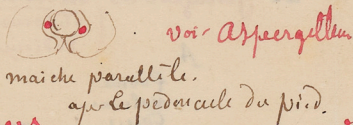 voir Aspergillus
maiche parallèle.
apr le pédoncule du pied.